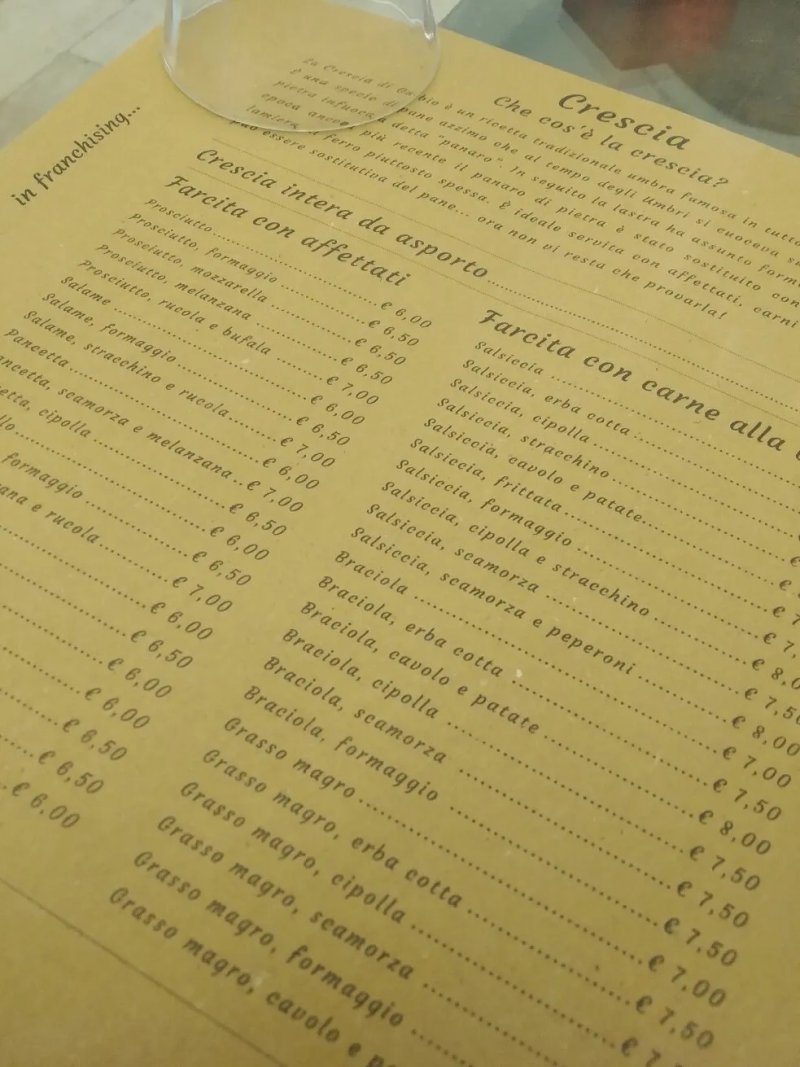 in franchising...
Crescia
Che cos'è la crescia?
La Crescia di Gubbio è un ricetta tradizionale umbra famosa in tutto
È una specie di pane azzimo che al tempo degli Umbri si cuoceva su
pietra infuocata detta "panaro". In seguito la lastra ha assunto form
epoca ancor più recente il panaro di pietra è stato sostituito con
lamiera di ferro piuttosto spessa. È ideale servita con affettati, carni
può essere sostitutiva del pane... ora non vi resta che provarla!
Crescia intera da asporto
Farcita con affettati
Prosciutto € 6,00
Prosciutto, formaggio € 6,50
Prosciutto, mozzarella € 6,50
Prosciutto, melanzana € 6,50
Prosciutto, rucola e bufala € 7,00
Salame € 6,00
Salame, formaggio € 6,50
Salame, stracchino e rucola € 7,00
Pancetta € 6,00
ancetta, scamorza e melanzana € 7,00
etta, cipolla € 6,50
llo € 6,00
formaggio € 6,50
ana e rucola € 7,00
€ 6,00
€ 6,50
€ 6,00
€ 6,00
€ 6,50
€ 6,50
€ 6,00
Farcita con carne alla
Salsiccia
Salsiccia, erba cotta
Salsiccia, cipolla
Salsiccia, stracchino
Salsiccia, cavolo e patate
Salsiccia, frittata
Salsiccia, formaggio
Salsiccia, cipolla e stracchino
Salsiccia, scamorza
Salsiccia, scamorza e peperoni € 8,00
Braciola € 7,00
Braciola, erba cotta € 7,50
Braciola, cavolo e patate € 8,00
Braciola, cipolla € 7,50
Braciola, scamorza € 7,50
Braciola, formaggio € 7,50
Grasso magro € 7,00
Grasso magro, erba cotta € 7,50
Grasso magro, cipolla
Grasso magro, scamorza
Grasso magro, formaggio
Grasso magro, cavolo e pa